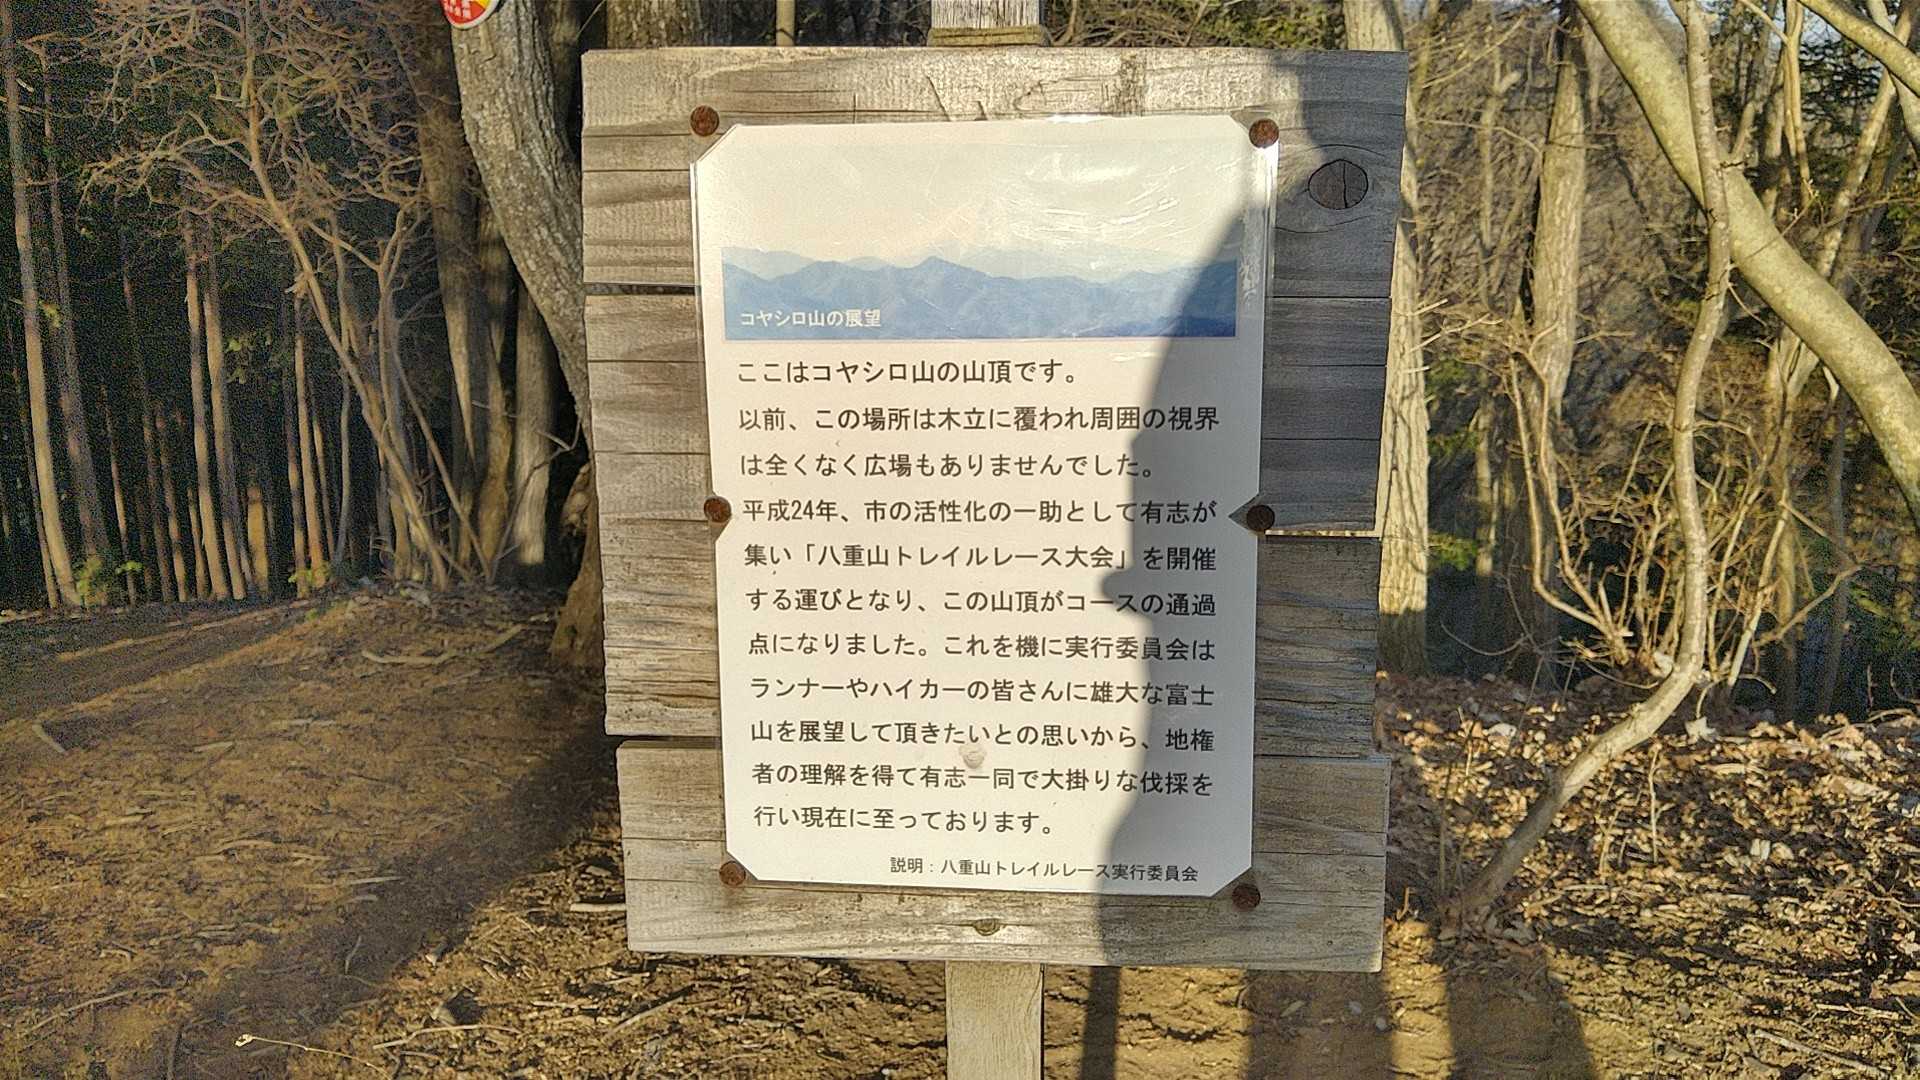 コヤシロ山の展望
ここはコヤシロ山の山頂です。
以前、この場所は木立に覆われ周囲の視界
は全くなく広場もありませんでした。
平成24年、市の活性化の一助として有志が
集い「八重山トレイルレース大会」を開催
する運びとなり、この山頂がコースの通過
点になりました。これを機に実行委員会は
ランナーやハイカーの皆さんに雄大な富士
山を展望して頂きたいとの思いから、地権
者の理解を得て有志一同で大掛りな伐採を
行い現在に至っております。
説明：八重山トレイルレース実行委員会